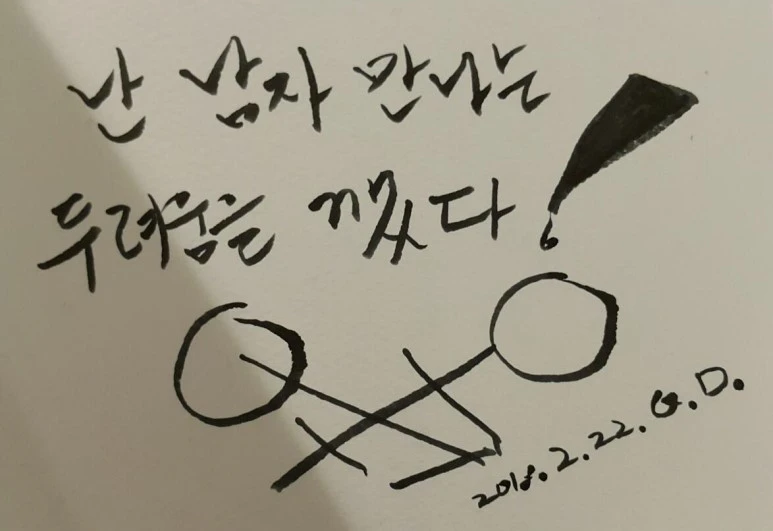 난 남자 만나는
두려움을 깼다!
2018.2.22.G.D.